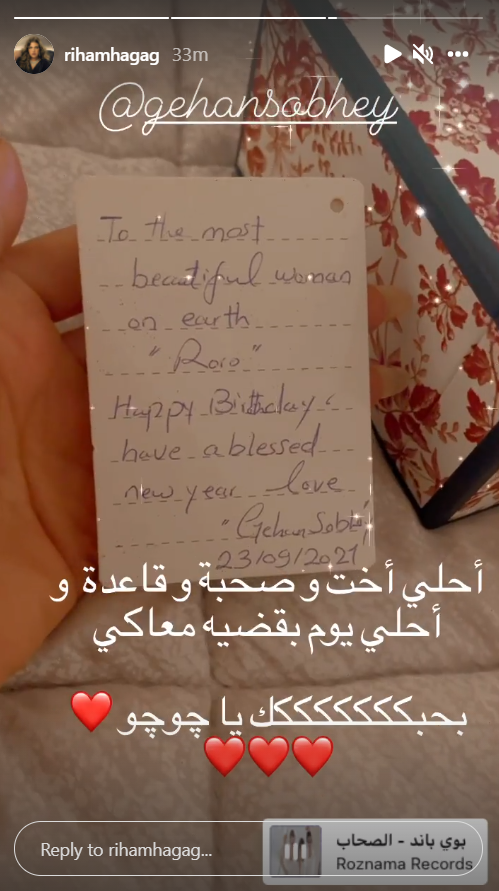 rihamhagag 33m
@gehansobhey
To the most
beautiful woman
on earth
"Roro"
Happy Birthday,
have a blessed
new year love
"Gehan Sobhi"
23/09/2021
أحلي أخت و صحبة و قاعدة و
أحلي يوم بقضيه معاكي
بحبكككككككك يا چوچو ❤️
❤️❤️❤️
Reply to rihamhagag...
بوي باند - الصحاب
Roznama Records